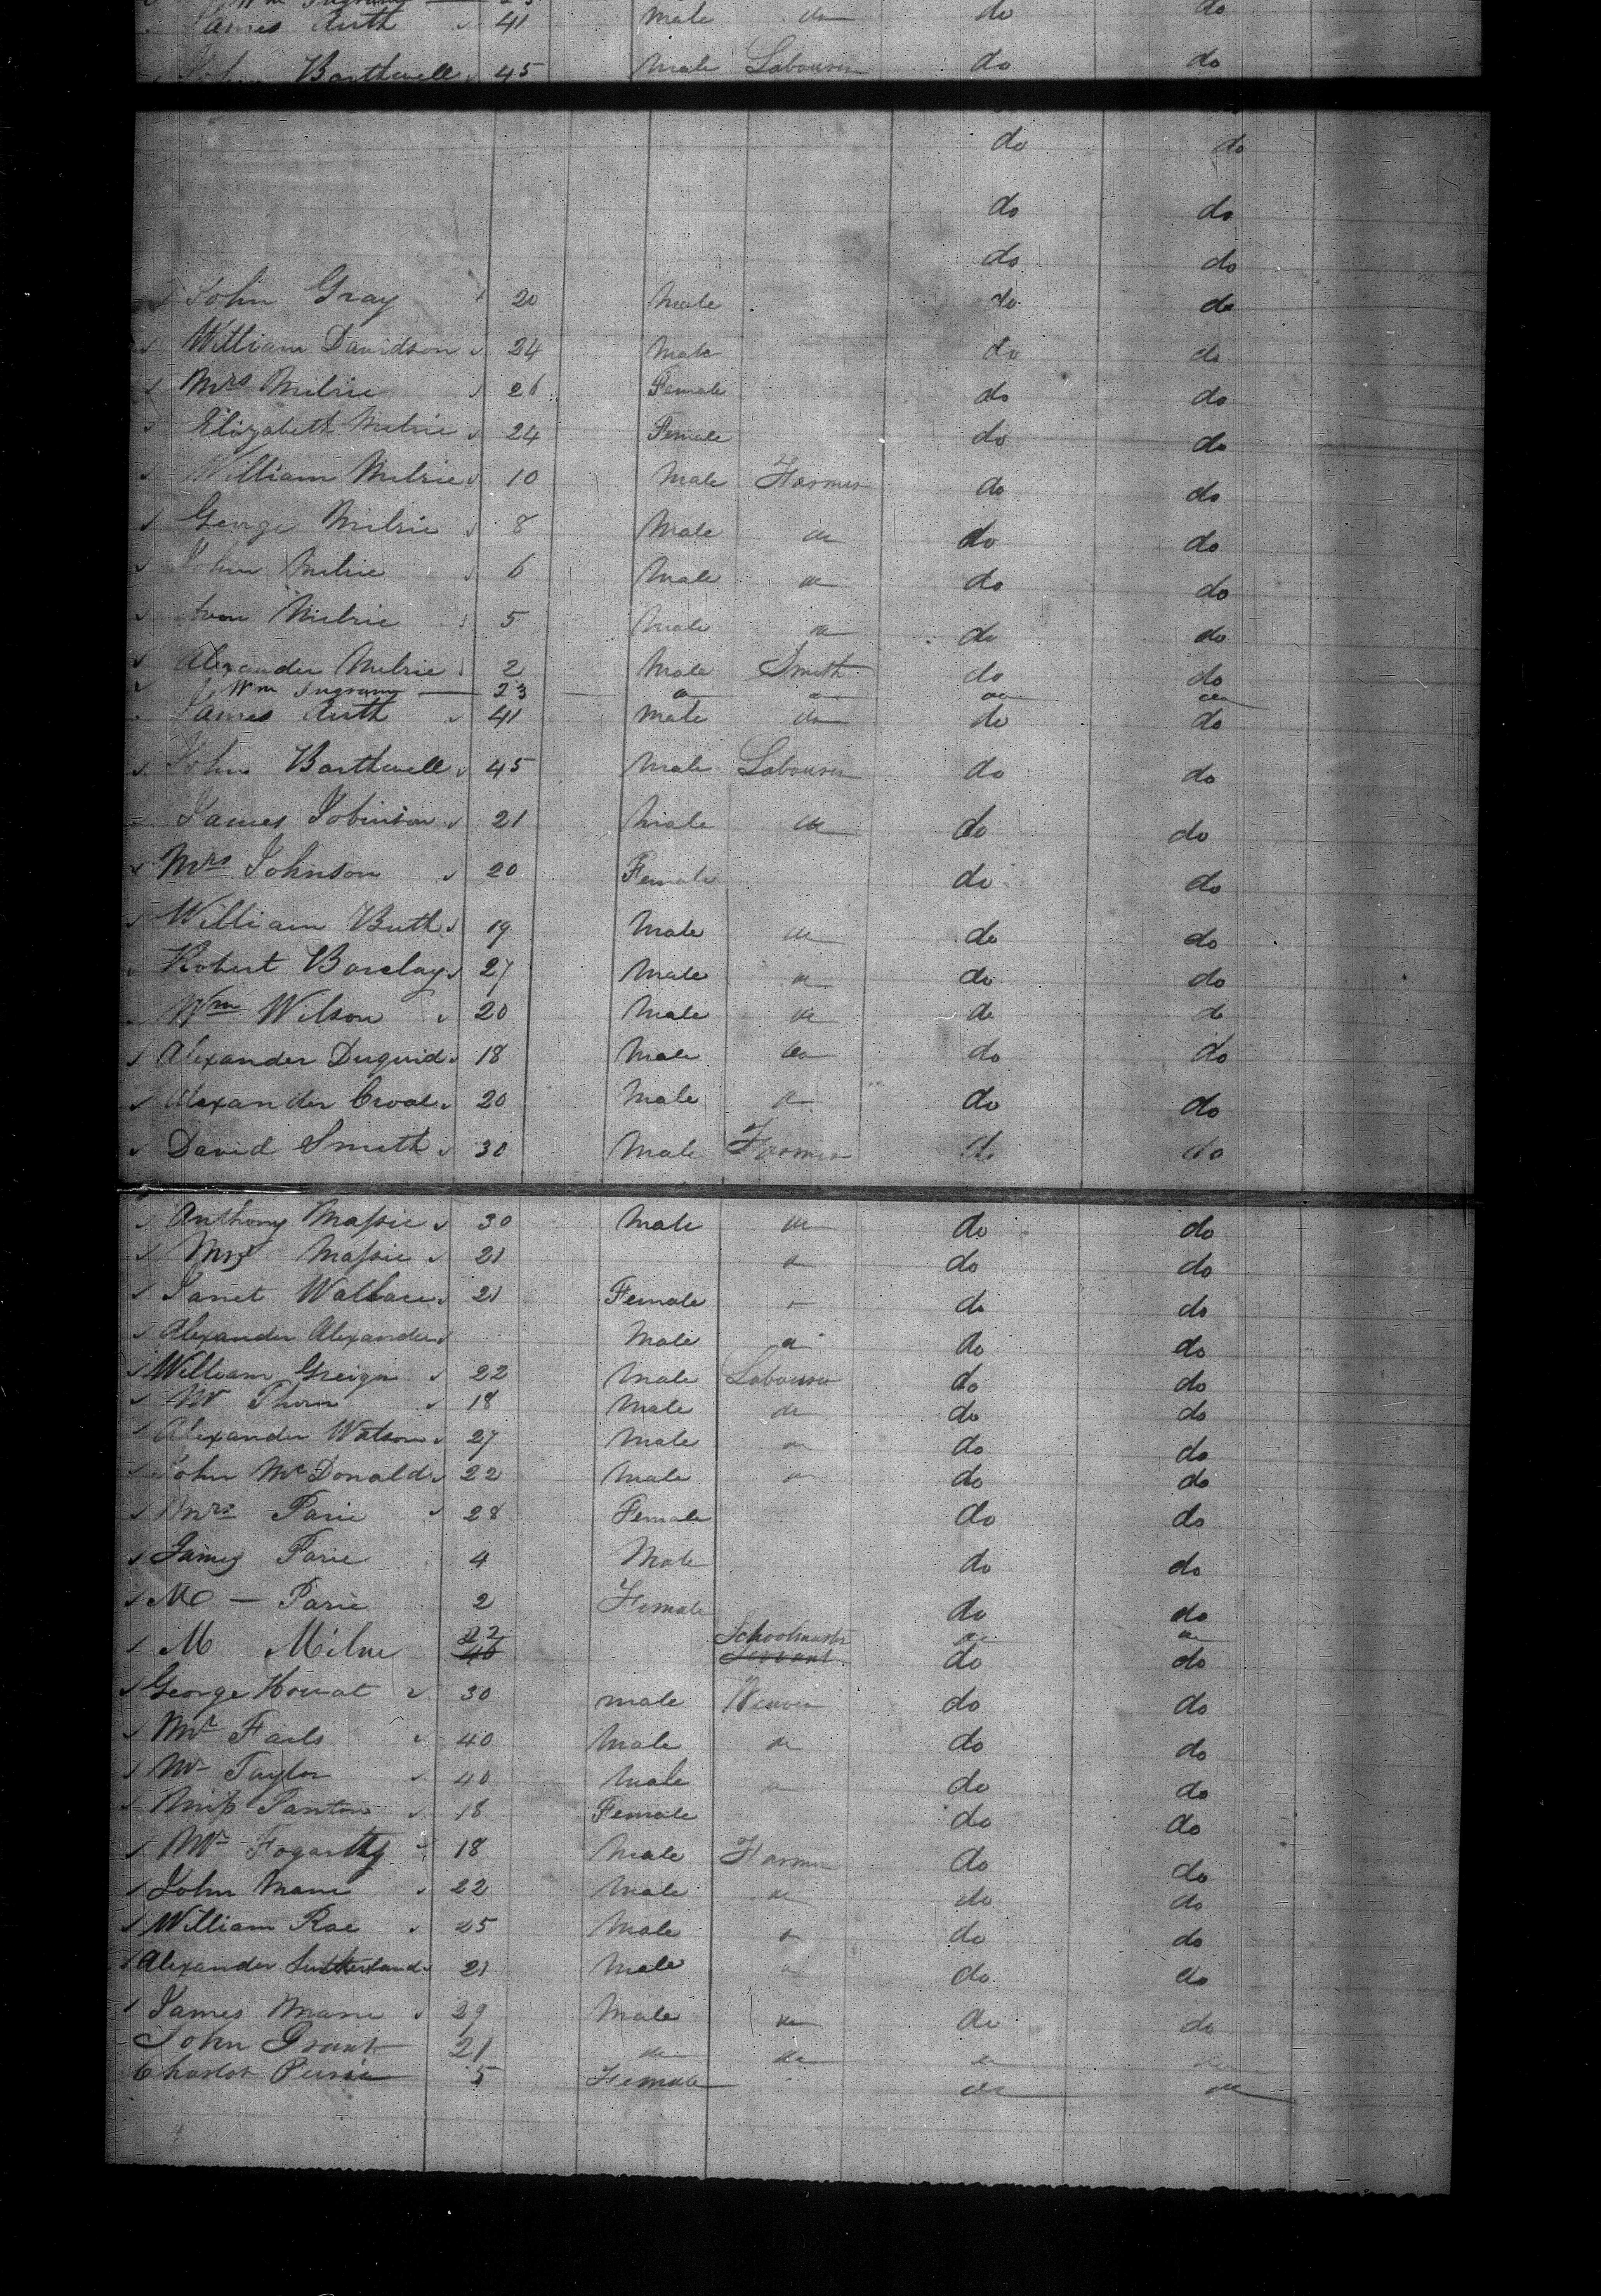 James Auth 41 Male do do do
John Barthwell 45 Male Labourer do do
do do
do do
do do
John Gray 20 Male do do
William Davidson 24 Male do do
Mrs Milnie 26 Female do do
Elizabeth Milnie 24 Female do do
William Milnie 10 Male Farmer do do
George Milnie 8 Male do do do
John Milnie 6 Male do do do
Milnie 5 Male do do do
Alexander Milnie 2 Male Smith do do
Wm Ingram 23 do do do do
James Auth 41 Male do do do
John Barthwell 45 Male Labourer do do
James Robinson 21 Male do do do
Mrs Johnson 20 Female do do
William Buth 19 Male do do do
Robert Barclay 27 Male do do do
Wm Wilson 20 Male do do do
Alexander Duguid 18 Male do do do
Alexander Croal 20 Male do do do
David Smith 30 Male Farmer do do
Anthony Massie 30 Male do do do
Mrs Massie 21 do do do
Janet Wallace 21 Female do do
Alexander Alexander Male do do do
William Greign 22 Male Labourer do do
Mr Thom 18 Male do do do
Alexander Watson 27 Male do do do
John McDonald 22 Male do do do
Mrs Parie 28 Female do do
James Parie 4 Male do do
M — Parie 2 Female do do
M Milne 22 Schoolmaster do do
46 Servant do do
George Howat 30 male Weaver do do
Mr Fails 40 Male do do do
Mr Taylor 40 Male do do do
Miss Panton 18 Female do do
Mr Fogarthy 18 Male Farmer do do
John Mann 22 Male do do do
William Rae 25 Male do do do
Alexander Sutherland 21 Male do do do
James Mann 29 Male do do do
John Grant 21 do do do do
Charlot 5 Female do do